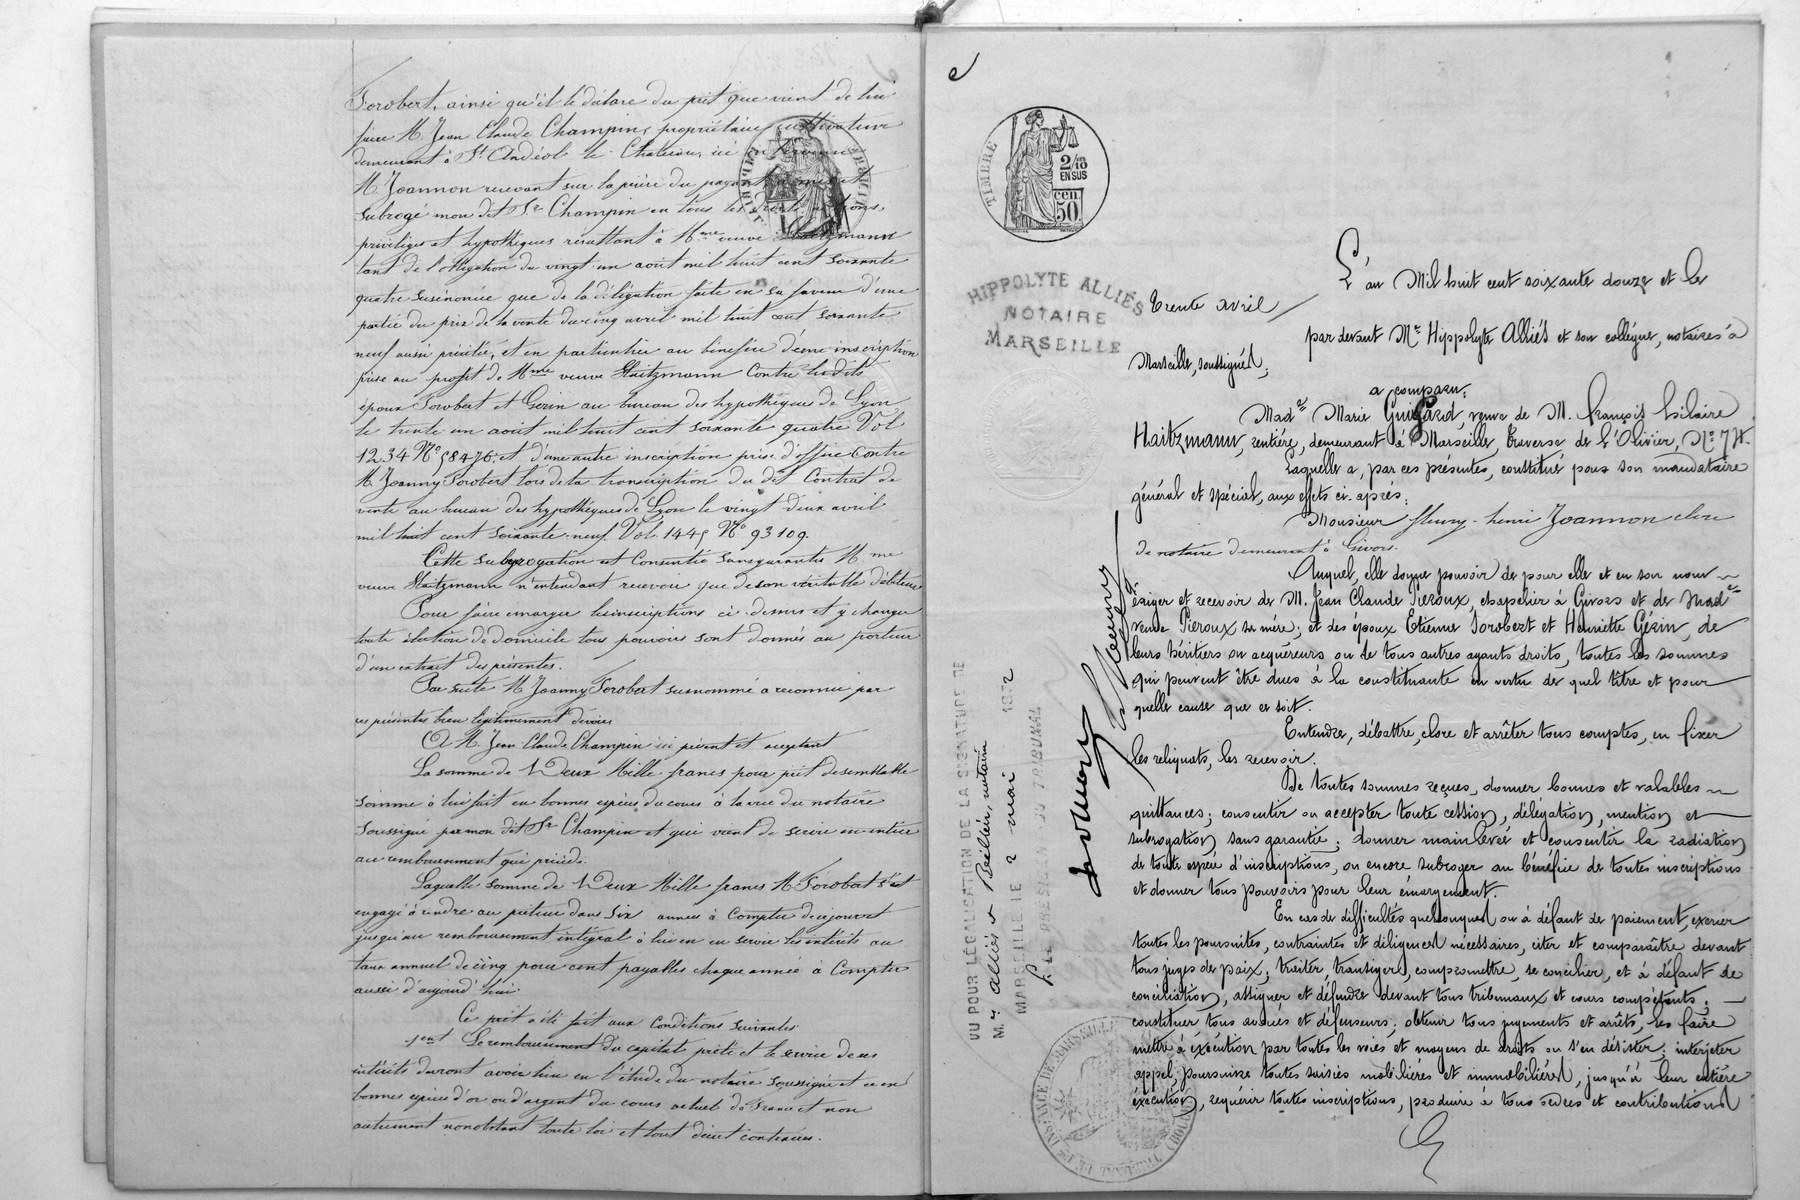 Sorobert, ainsi qu'il le déclare du prêt que vient de lui
faire M. Jean Claude Champin, propriétaire cultivateur
demeurant à St Andéol le Château, ici
M. Joannon recevant sur la prière du payant
subrogé mon dit Sr Champin en tous les droits actions,
privilèges et hypothèques résultant à Mme veuve Haitzmann
tant de l'obligation du vingt un août mil huit cent soixante
quatre susénoncée que de la délégation faite en sa faveur d'une
partie du prix de la vente du cinq avril mil huit cent soixante
neuf aussi précitée, et en particulier au bénéfice d'une inscription
prise au profit de Mme veuve Haitzmann contre lesdits
époux Sorobert et Gérin au bureau des hypothèques de Lyon
le trente un août mil huit cent soixante quatre Vol
1234 No 58476, et d'une autre inscription prise d'office contre
M. Joanny Sorobert lors de la transcription du dit Contrat de
vente au bureau des hypothèques de Lyon le vingt deux avril
mil huit cent soixante-neuf Vol. 1445 No 93109.
Cette subrogation est consentie sans garantie Mme
veuve Haitzmann n'entendant recevoir que de son véritable débiteur
Pour faire émarger les inscriptions ci-dessus et y changer
toute élection de domicile tous pouvoirs sont donnés au porteur
d'un extrait des présentes.
Par suite M. Joanny Sorobert susnommé a reconnu par
ces présentes bien légitimement devoir
A M. Jean Claude Champin ici présent et acceptant
La somme de Deux Mille francs pour prêt de semblable
somme à lui fait en bonnes espèces du cours à la vue du notaire
soussigné par mon dit Sr Champin et qui vient de servir en entier
au remboursement qui précède.
Laquelle somme de Deux Mille francs M. Sorobert s'est
engagé à rendre au prêteur dans six années à compter de ce jour et
jusqu'au remboursement intégral à lui en en servir les intérêts au
taux annuel de cinq pour cent payables chaque année à compter
aussi d'aujourd'hui.
Ce prêt a été fait aux conditions suivantes
1ent Le remboursement du capital prêté et le service de ses
intérêts devront avoir lieu en l'étude du notaire soussigné et ce en
bonnes espèces d'or ou d'argent du cours actuel de France et non
autrement nonobstant toute loi et tout décret contraires.
TIMBRE
2/10
EN SUS
50 cen
HIPPOLYTE ALLIÉS
NOTAIRE
MARSEILLE
L'an Mil huit cent soixante douze et le
trente avril
par devant Me Hippolyte Alliés et son collègue, notaires à
Marseille, soussignés,
a comparu:
Made Marie Guigard, veuve de M. François Hilaire
Haitzmann, rentière, demeurant à Marseille, traverse de l'Olivier, No 74.
Laquelle a, par ces présentes, constitué pour son mandataire
général et spécial, aux effets ci-après:
Monsieur Fleury-henri Joannon clerc
de notaire demeurant à Givors.
Auquel, elle donne pouvoir de pour elle et en son nom
exiger et recevoir de M. Jean Claude Pieroux, chapelier à Givors et de Made
veuve Pieroux sa mère; et des époux Etienne Sorobert et Henriette Gérin, de
leurs héritiers ou acquéreurs ou de tous autres ayants droits, toutes les sommes
qui peuvent être dues à la constituante en vertu de quel titre et pour
quelle cause que ce soit.
Entendre, débattre, clore et arrêter tous comptes, en fixer
les reliquats, les recevoir.
De toutes sommes reçues, donner bonnes et valables
quittances; consentir ou accepter toute cession, délégation, mention et
subrogation sans garantie; donner mainlevée et consentir la radiation
de toute espèce d'inscriptions, ou encore subroger au bénéfice de toutes inscriptions
et donner tous pouvoirs pour leur émargement.
En cas de difficultés quelconques ou à défaut de paiement, exercer
toutes les poursuites, contraintes et diligences nécessaires, citer et comparaître devant
tous juges de paix; traiter, transiger, compromettre, se concilier, et à défaut de
conciliation, assigner et défendre devant tous tribunaux et cours compétents;
constituer tous avoués et défenseurs; obtenir tous jugements et arrêts, les faire
mettre à exécution par toutes les voies et moyens de droits ou s'en désister; interjeter
appel, poursuivre toutes saisies mobilières et immobilières, jusqu'à leur entière
exécution, requérir toutes inscriptions, produire à tous ordres et contributions
VU POUR LÉGALISATION DE LA SIGNATURE DE
M. Alliés et notaire
MARSEILLE LE 2 mai 1872
P. LE PRÉSIDENT DU TRIBUNAL